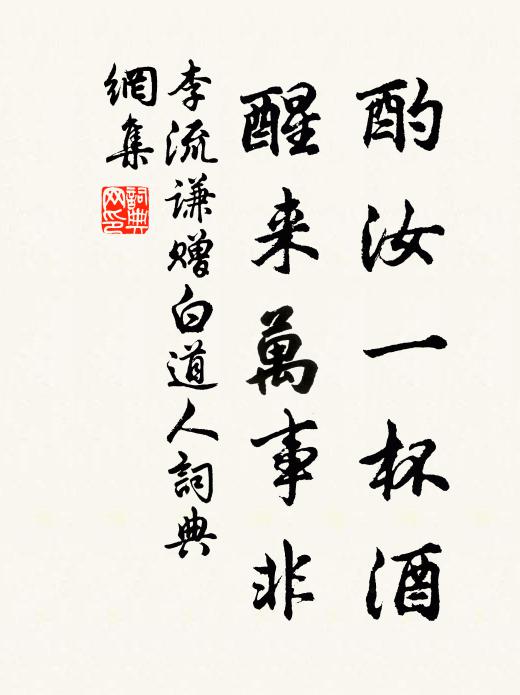 酌汝一杯酒
醒来萬事非
李流谦赠白道人詞典
網集
詞典
网印